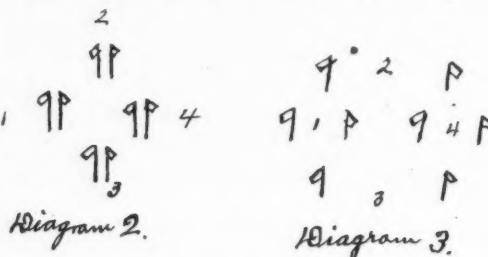 2
1 4
3
Diagram 2.
2
1 4
3
Diagram 3.